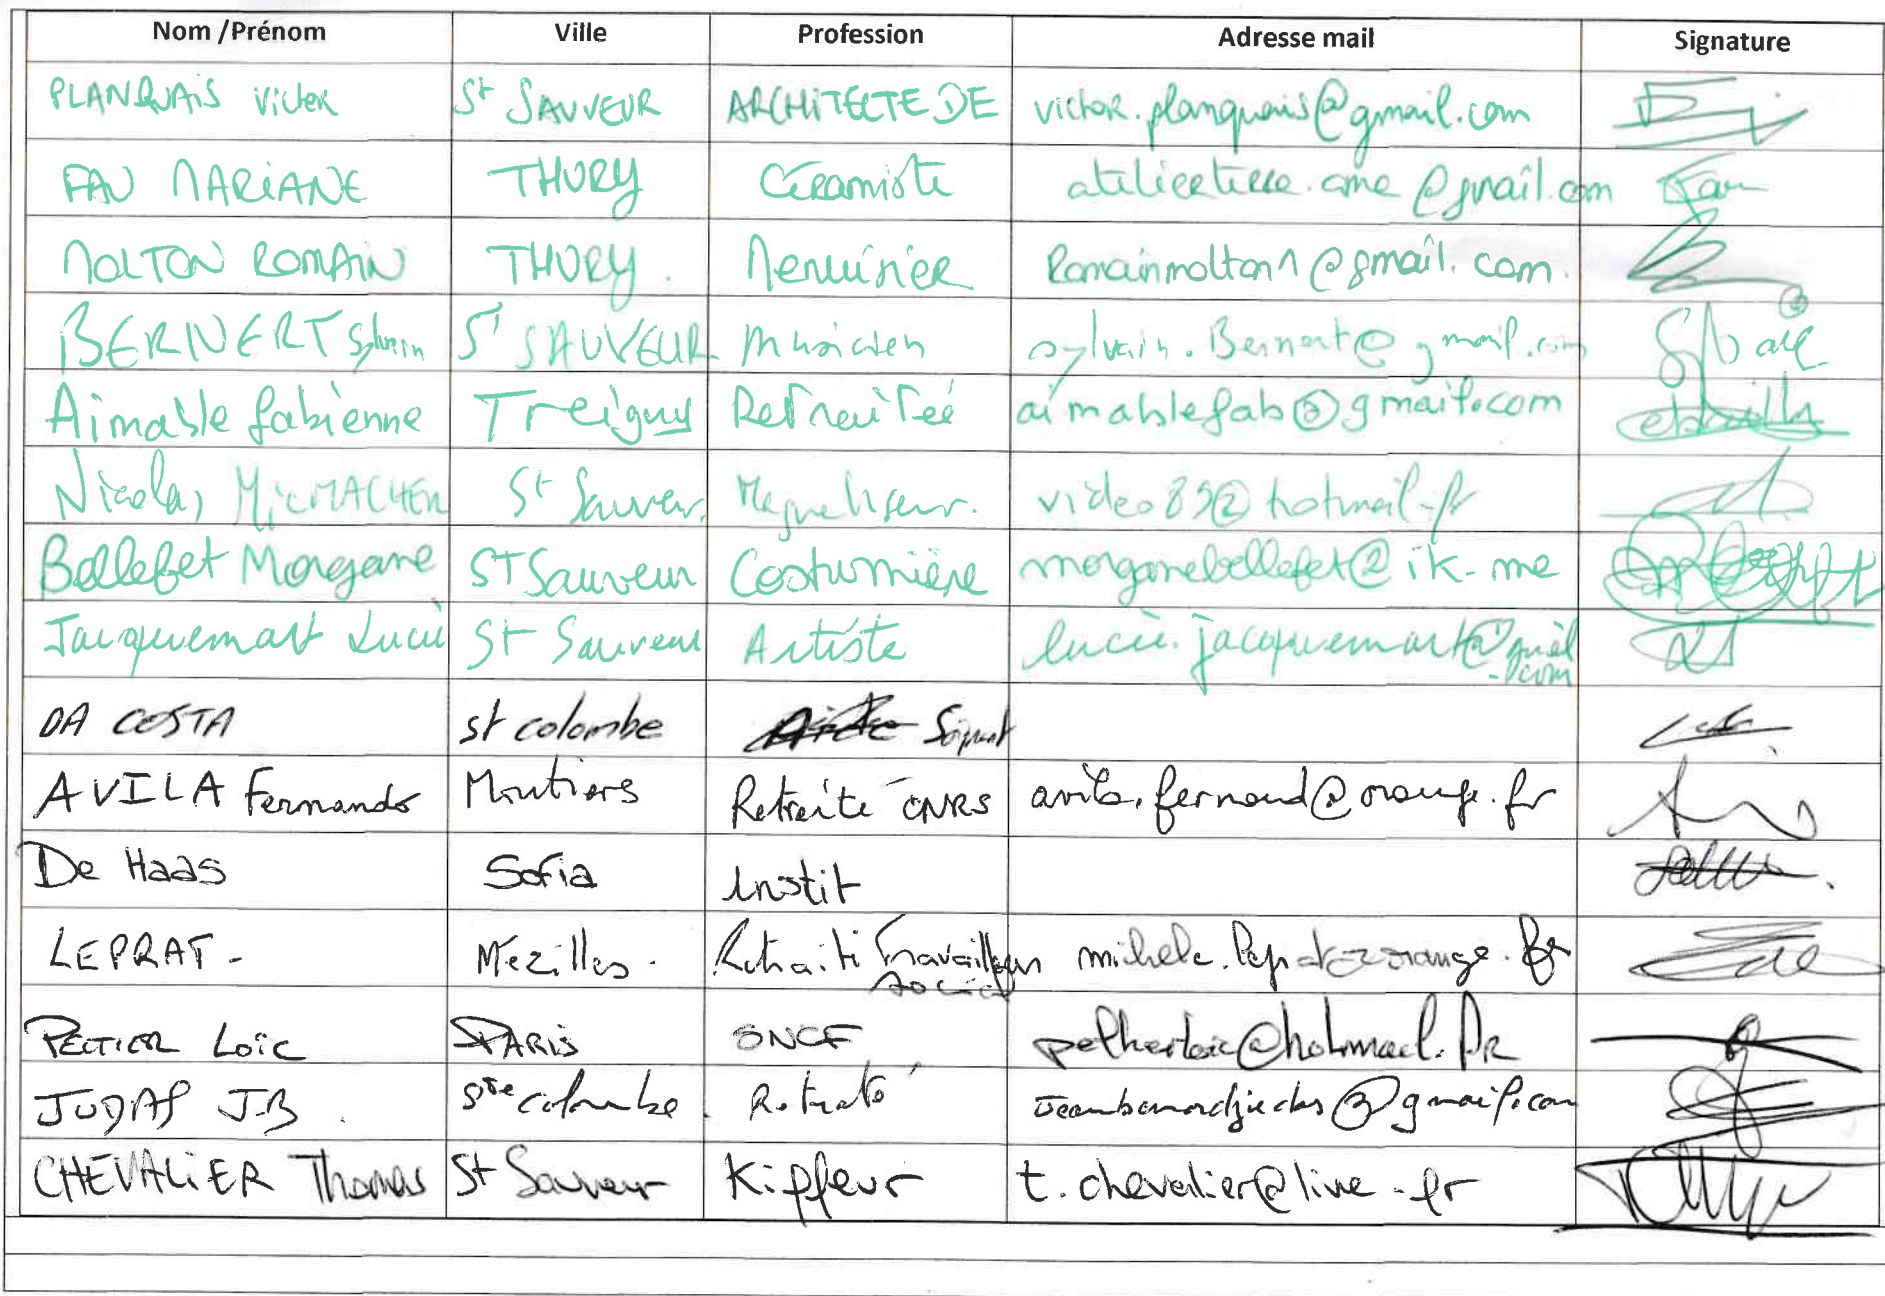 Nom /Prénom Ville Profession Adresse mail Signature
PLANQUAIS Victor St SAUVEUR ARCHITECTE DE victor.planquais@gmail.com
FAU MARIANE THURY Céramiste atelierterre.ame@gmail.com Fau
MOLTON ROMAIN THURY. Menuisier Romainmolton1@gmail.com
BERNERT Sylvain St SAUVEUR Musicien sylvain.Bernert@gmail.com
Aimable fabienne Treigny Retraiteé aimablefab@gmail.com
Nicolas St Sauveur. Maquettiseur. video89@hotmail.fr
Bellefet Morgane ST Sauveur Costumière morganebellefet@ik.me
Jacquemart Lucie St Sauveur Artiste lucie.jacquemart@gmail.com
DA COSTA st colombe Soignant
AVILA Fernando Moutiers Retraité CNRS avila.fernand@orange.fr
De Haas Sofia instit
LEPRAT - Mézilles. Retraité Travailleur michele.leprat@orange.fr
social
PELTIER Loïc PARIS SNCF peltierloic@hotmail.FR
JUDAS J.B. Ste colombe. Retraité jeanbernardjudas@gmail.com
CHEVALIER Thomas St Sauveur Kiffeur t.chevalier@live.fr